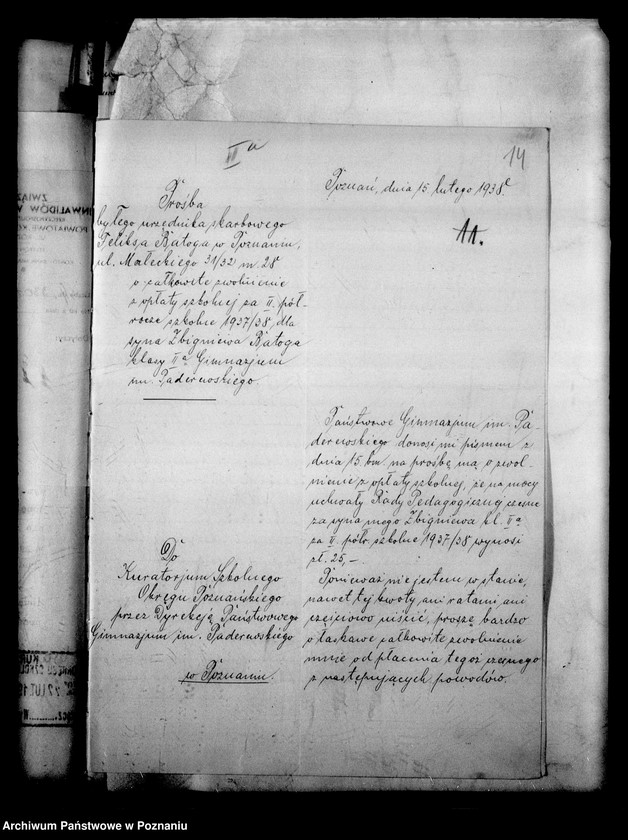 II a
14
Poznań, dnia 15 lutego 1938 r.
11.
Prośba
byłego urzędnika skarbowego
Feliksa Ratoga w Poznaniu,
ul. Małeckiego 31/32 m. 28
o całkowite zwolnienie
z opłaty szkolnej za II. pół-
rocze szkolne 1937/38, dla
syna Zbigniewa Ratoga
klasy IIa Gimnazjum
im. Paderewskiego
Do
Kuratorjum Szkolnego
Okręgu Poznańskiego
przez Dyrekcję Państwowego
Gimnazjum im. Paderewskiego
w Poznaniu.
Państwowe Gimnazjum im. Pa-
derewskiego donosi mi pismem z
dnia 15. bm. na prośbę mą o zwol-
nienie z opłaty szkolnej, że na mocy
uchwały Rady Pedagogicznej czesne
za syna mego Zbigniewa kl. IIa
za II. półr. szkolne 1937/38 wynosi
zł. 25,-
Ponieważ nie jestem w stanie,
nawet tej kwoty ani ratami, ani
częściowo uiścić, proszę bardzo
o łaskawe całkowite zwolnienie
mnie od płacenia tegoż czesnego
z następujących powodów.
Archiwum Państwowe w Poznaniu